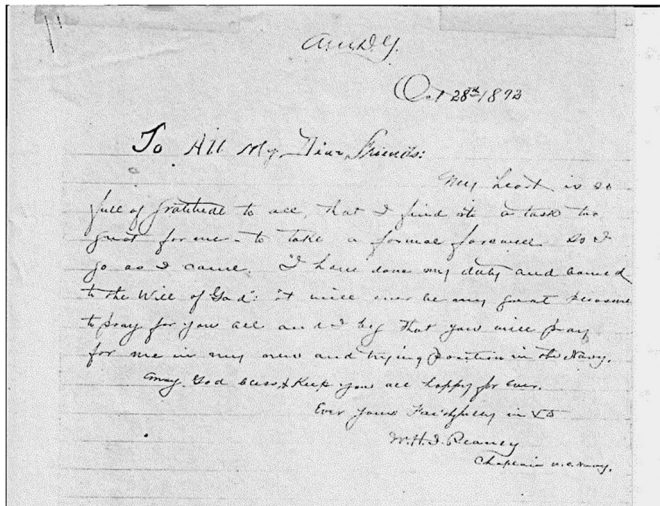 A.M.D.G.
Oct 28th 1892
To All My Dear Friends:
My heart is so
full of gratitude to all, that I find it a task too
great for me to take a formal farewell. So I
go as I came. "I have done my duty and bowed
to the Will of God": it will ever be my great pleasure
to pray for you all and I beg that you will pray
for me in my new and trying position in the Navy.
May God bless & keep you all happy for ever.
Ever yours Faithfully in Xt
W.H.I. Reaney
Chaplain U.S. Navy.